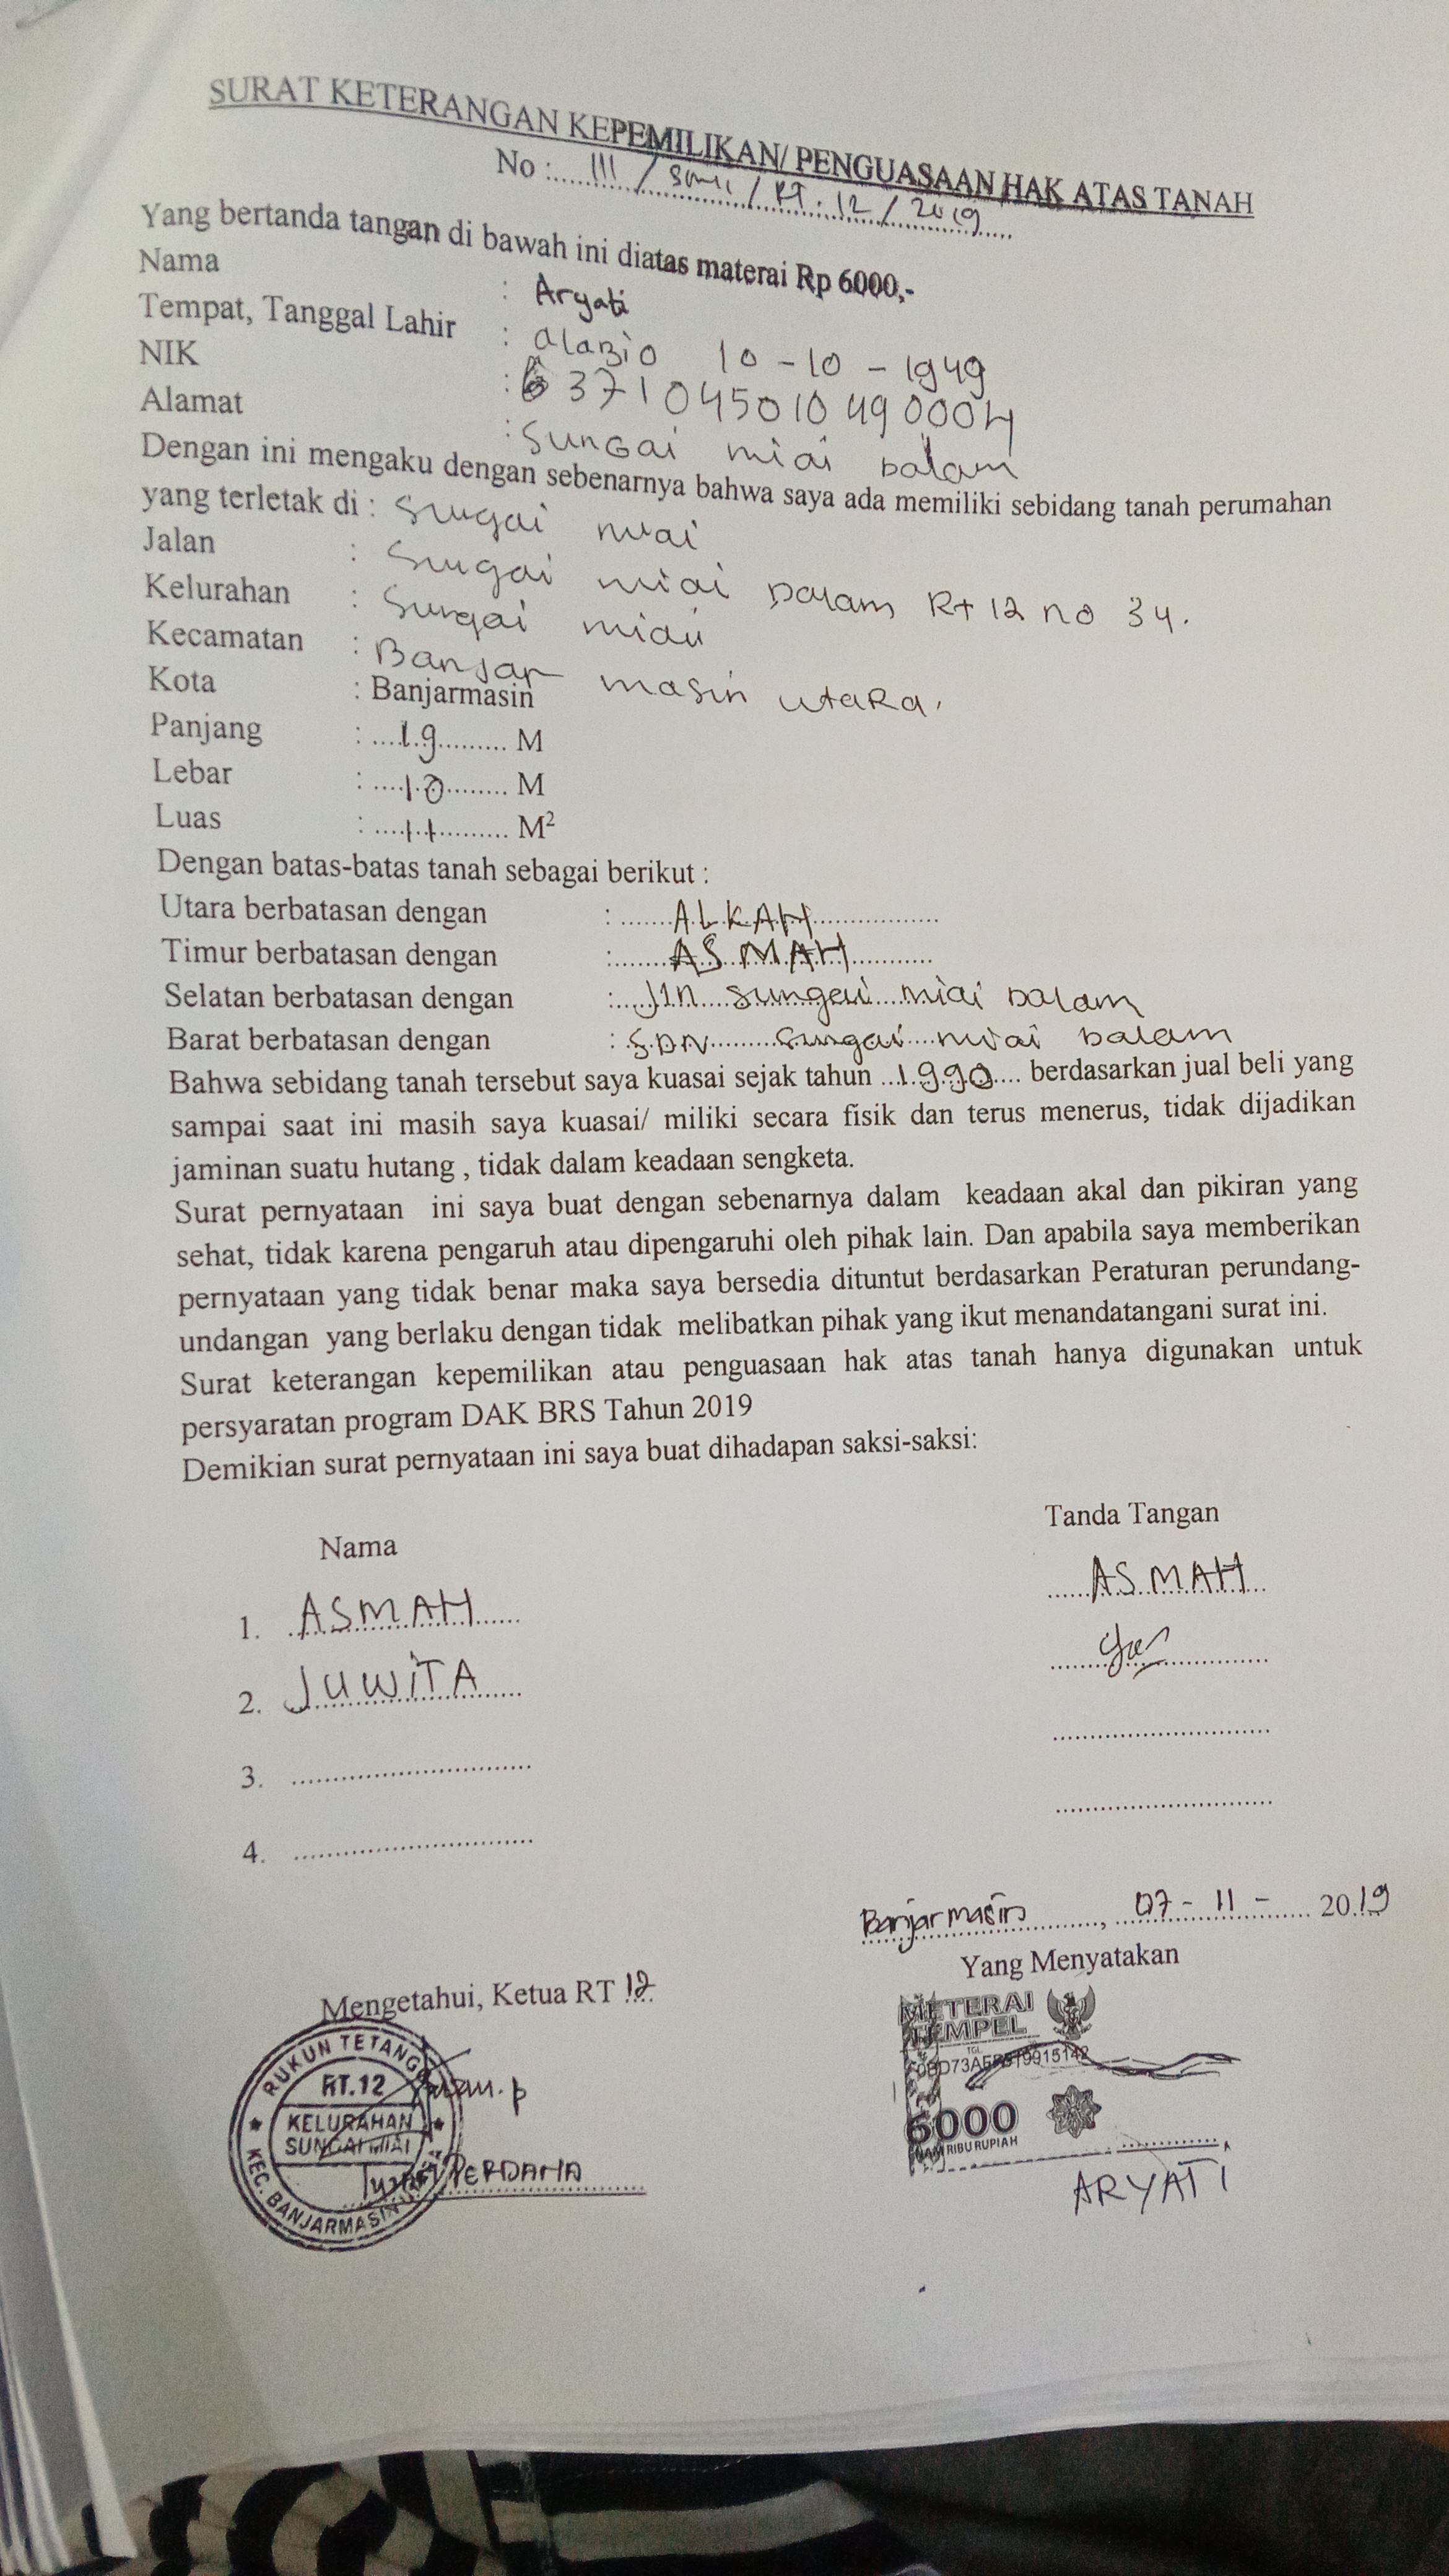 SURAT KETERANGAN KEPEMILIKAN/ PENGUASAAN HAK ATAS TANAH
No : III / / RT. 12 / 2019
Yang bertanda tangan di bawah ini diatas materai Rp 6000,-
Nama : Aryati
Tempat, Tanggal Lahir : alabio 10 - 10 - 1949
NIK : 6371045010490004
Alamat : Sungai miai dalam
Dengan ini mengaku dengan sebenarnya bahwa saya ada memiliki sebidang tanah perumahan
yang terletak di : Sungai miai
Jalan : Sungai miai Dalam Rt 12 no 34.
Kelurahan : Sungai miai
Kecamatan : Banjar masin utaRa.
Kota : Banjarmasin
Panjang : 19 M
Lebar : 10 M
Luas : M²
Dengan batas-batas tanah sebagai berikut :
Utara berbatasan dengan : ALKAH
Timur berbatasan dengan : ASMAH
Selatan berbatasan dengan : Jln sungai miai Dalam
Barat berbatasan dengan : SDN Sungai miai dalam
Bahwa sebidang tanah tersebut saya kuasai sejak tahun 1990 berdasarkan jual beli yang
sampai saat ini masih saya kuasai/ miliki secara fisik dan terus menerus, tidak dijadikan
jaminan suatu hutang , tidak dalam keadaan sengketa.
Surat pernyataan ini saya buat dengan sebenarnya dalam keadaan akal dan pikiran yang
sehat, tidak karena pengaruh atau dipengaruhi oleh pihak lain. Dan apabila saya memberikan
pernyataan yang tidak benar maka saya bersedia dituntut berdasarkan Peraturan perundang-
undangan yang berlaku dengan tidak melibatkan pihak yang ikut menandatangani surat ini.
Surat keterangan kepemilikan atau penguasaan hak atas tanah hanya digunakan untuk
persyaratan program DAK BRS Tahun 2019
Demikian surat pernyataan ini saya buat dihadapan saksi-saksi:
Nama Tanda Tangan
1. ASMAH ASMAH
2. JUWiTA
3.
4.
Banjarmasin, 07 - 11 - 2019
Mengetahui, Ketua RT 12 Yang Menyatakan
METERAI
TEMPEL
TGL
6000
ENAM RIBU RUPIAH
RUKUN TETANGGA
RT.12
KELURAHAN
SUNGAI MIAI
KEC. BANJARMASIN
PERDANA
ARYATI